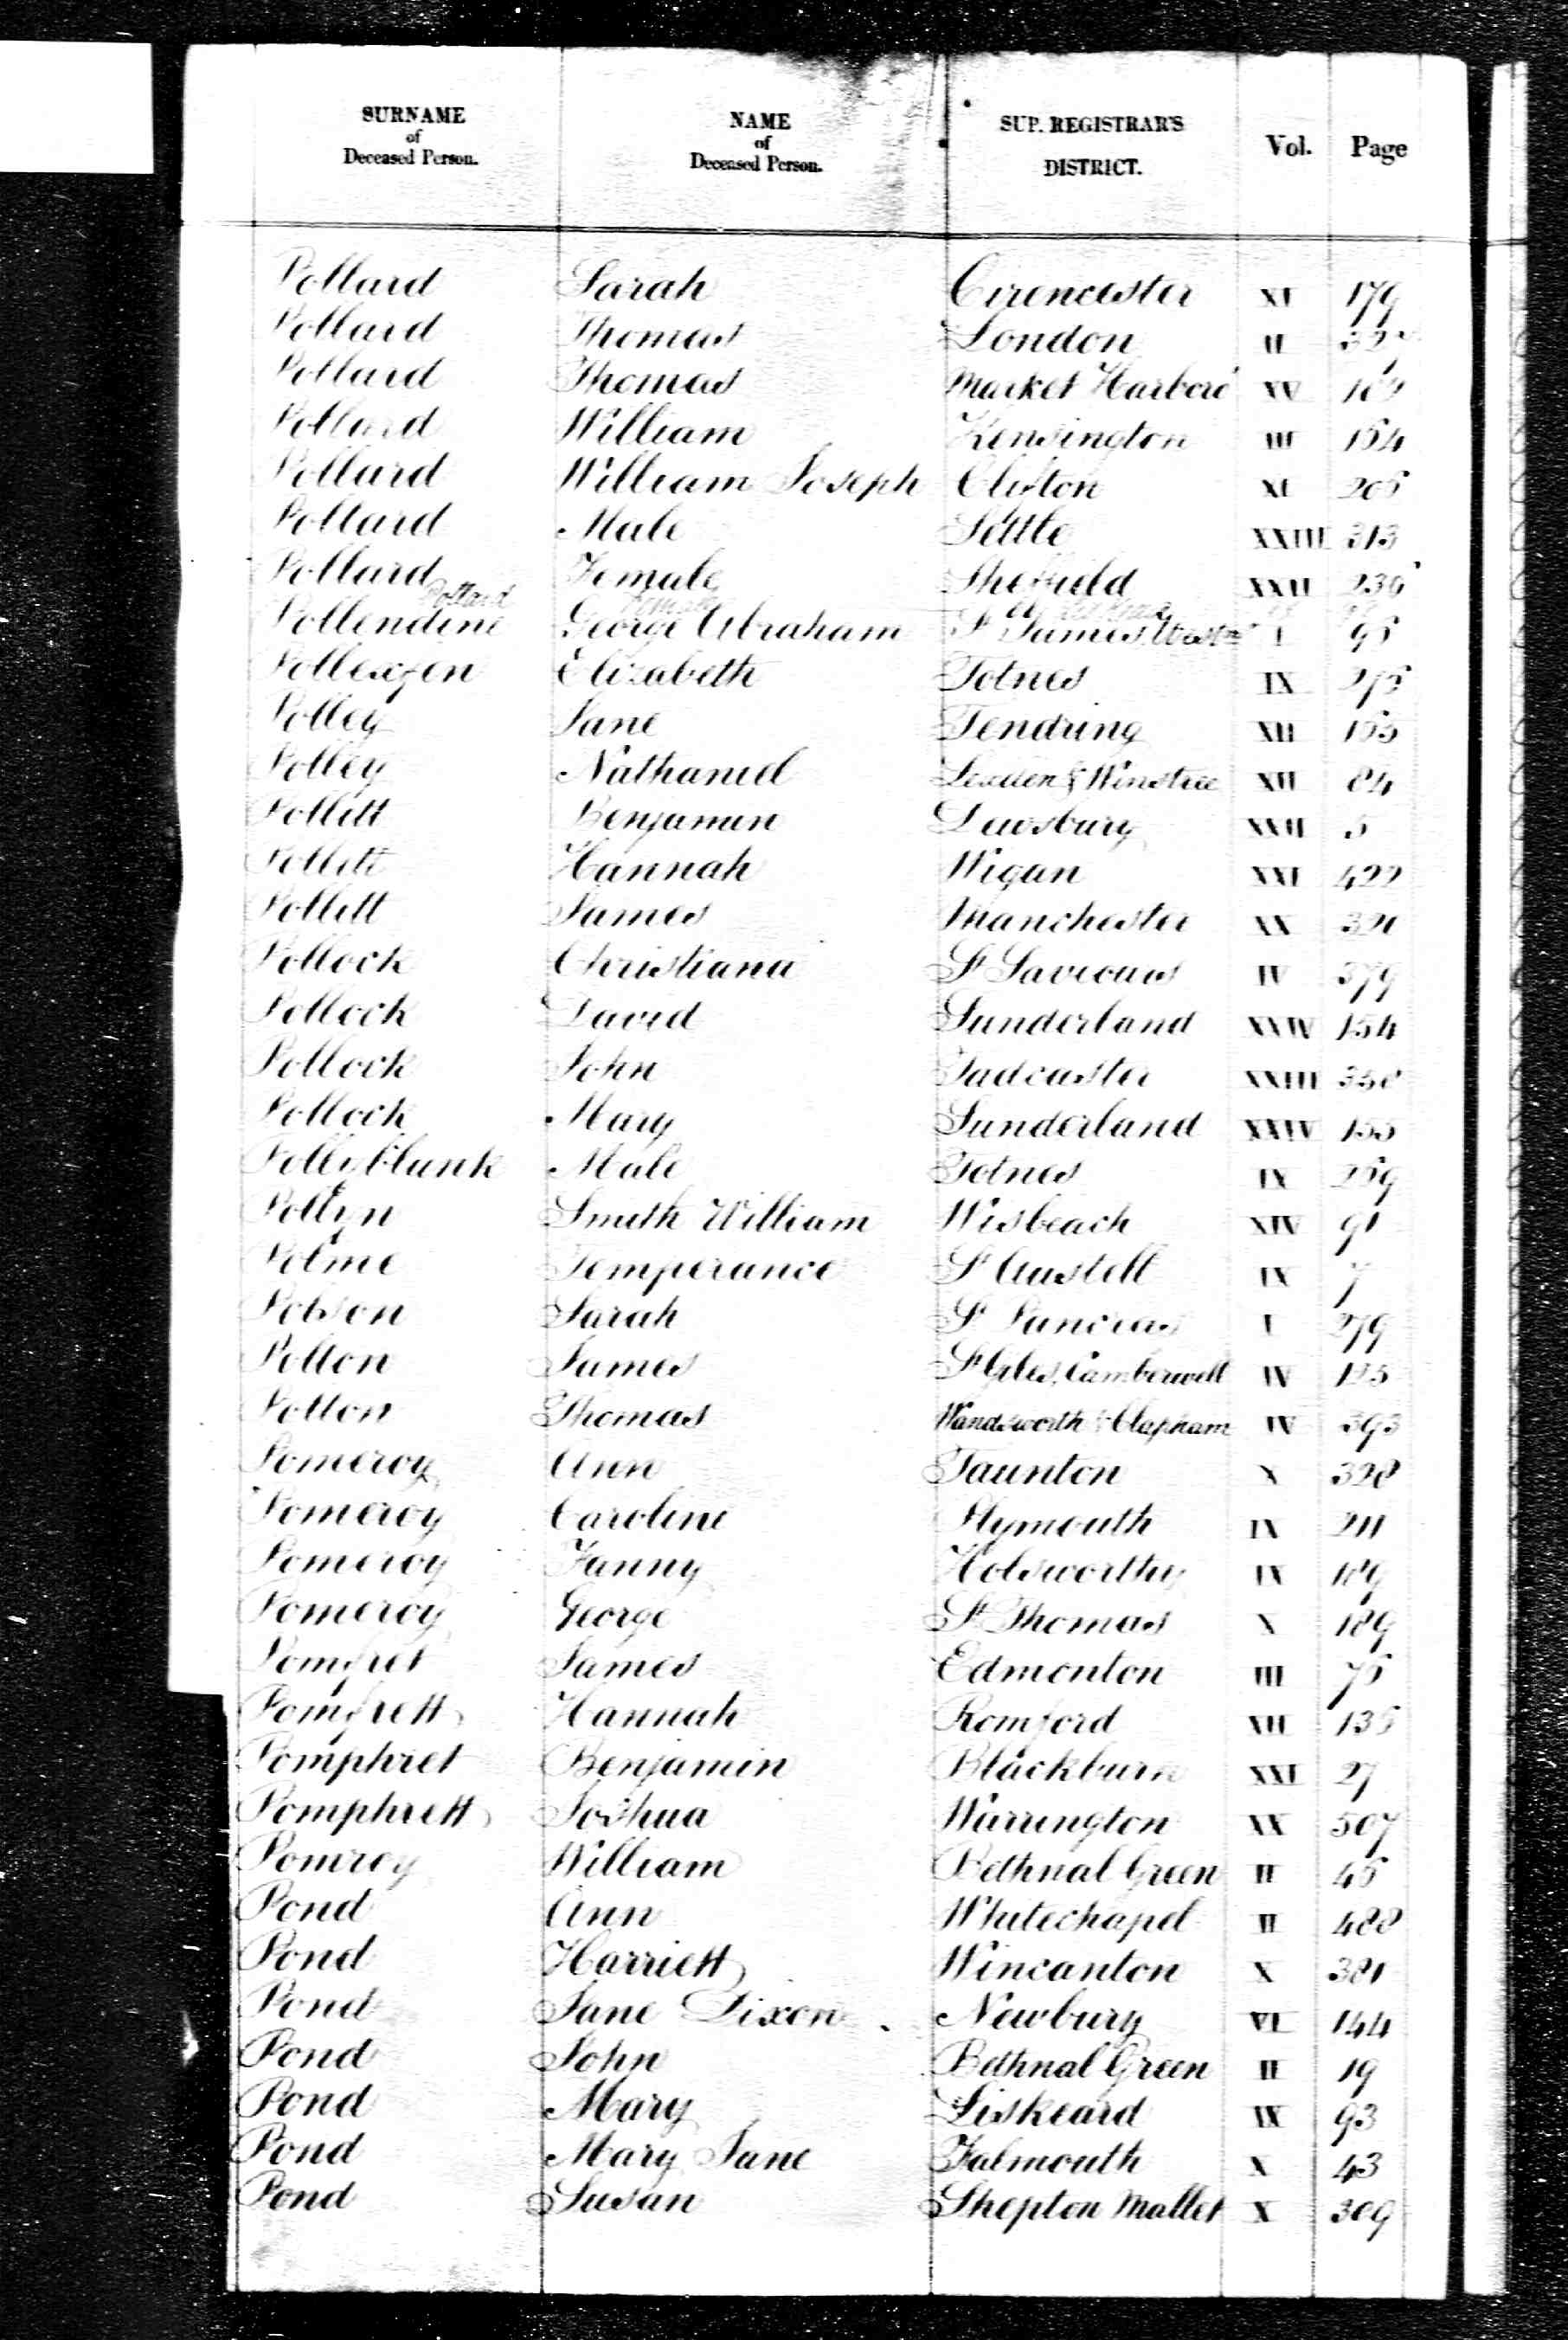 SURNAME of Deceased Person. NAME of Deceased Person. SUP. REGISTRAR'S DISTRICT. Vol. Page
Pollard Sarah Cirencester XI 179
Pollard Thomas London II
Pollard Thomas Market Harboro' XV
Pollard William Kensington III 154
Pollard William Joseph Clifton XI 205
Pollard Male Settle XXIII 313
Pollard Female Sheffield XXII
Pollard Female
Pollendine George Abraham St James Westr I 95
Pollexfen Elizabeth Totnes IX 275
Polley Jane Tendring XII 155
Polley Nathaniel Lexden & Winstree XII 84
Pollitt Benjamin Dewsbury XXII 5
Pollitt Hannah Wigan XXI 422
Pollitt James Manchester XX
Pollock Christiana St Saviours IV 379
Pollock David Sunderland XXIV 154
Pollock John Tadcaster XXIII 358
Pollock Mary Sunderland XXIV 155
Pollyblank Male Totnes IX 259
Pollyn Smith William Wisbeach XIV 91
Polme Temperance St Austell IX 7
Polson Sarah St Pancras I 279
Polton James St Giles, Camberwell IV 125
Polton Thomas Wandsworth & Clapham IV 393
Pomeroy Ann Taunton X 328
Pomeroy Caroline Plymouth IX 211
Pomeroy Fanny Holsworthy IX 189
Pomeroy George St Thomas X 189
Pomfret James Edmonton III 75
Pomfrett Hannah Romford XII 135
Pomphret Benjamin Blackburn XXI 27
Pomphrett Joshua Warrington XX 507
Pomroy William Bethnal Green II 45
Pond Ann Whitechapel II 488
Pond Harriett Wincanton X 381
Pond Jane Dixon Newbury VI 144
Pond John Bethnal Green II 19
Pond Mary Liskeard IX 93
Pond Mary Jane Falmouth X 43
Pond Susan Shepton Mallet X 309